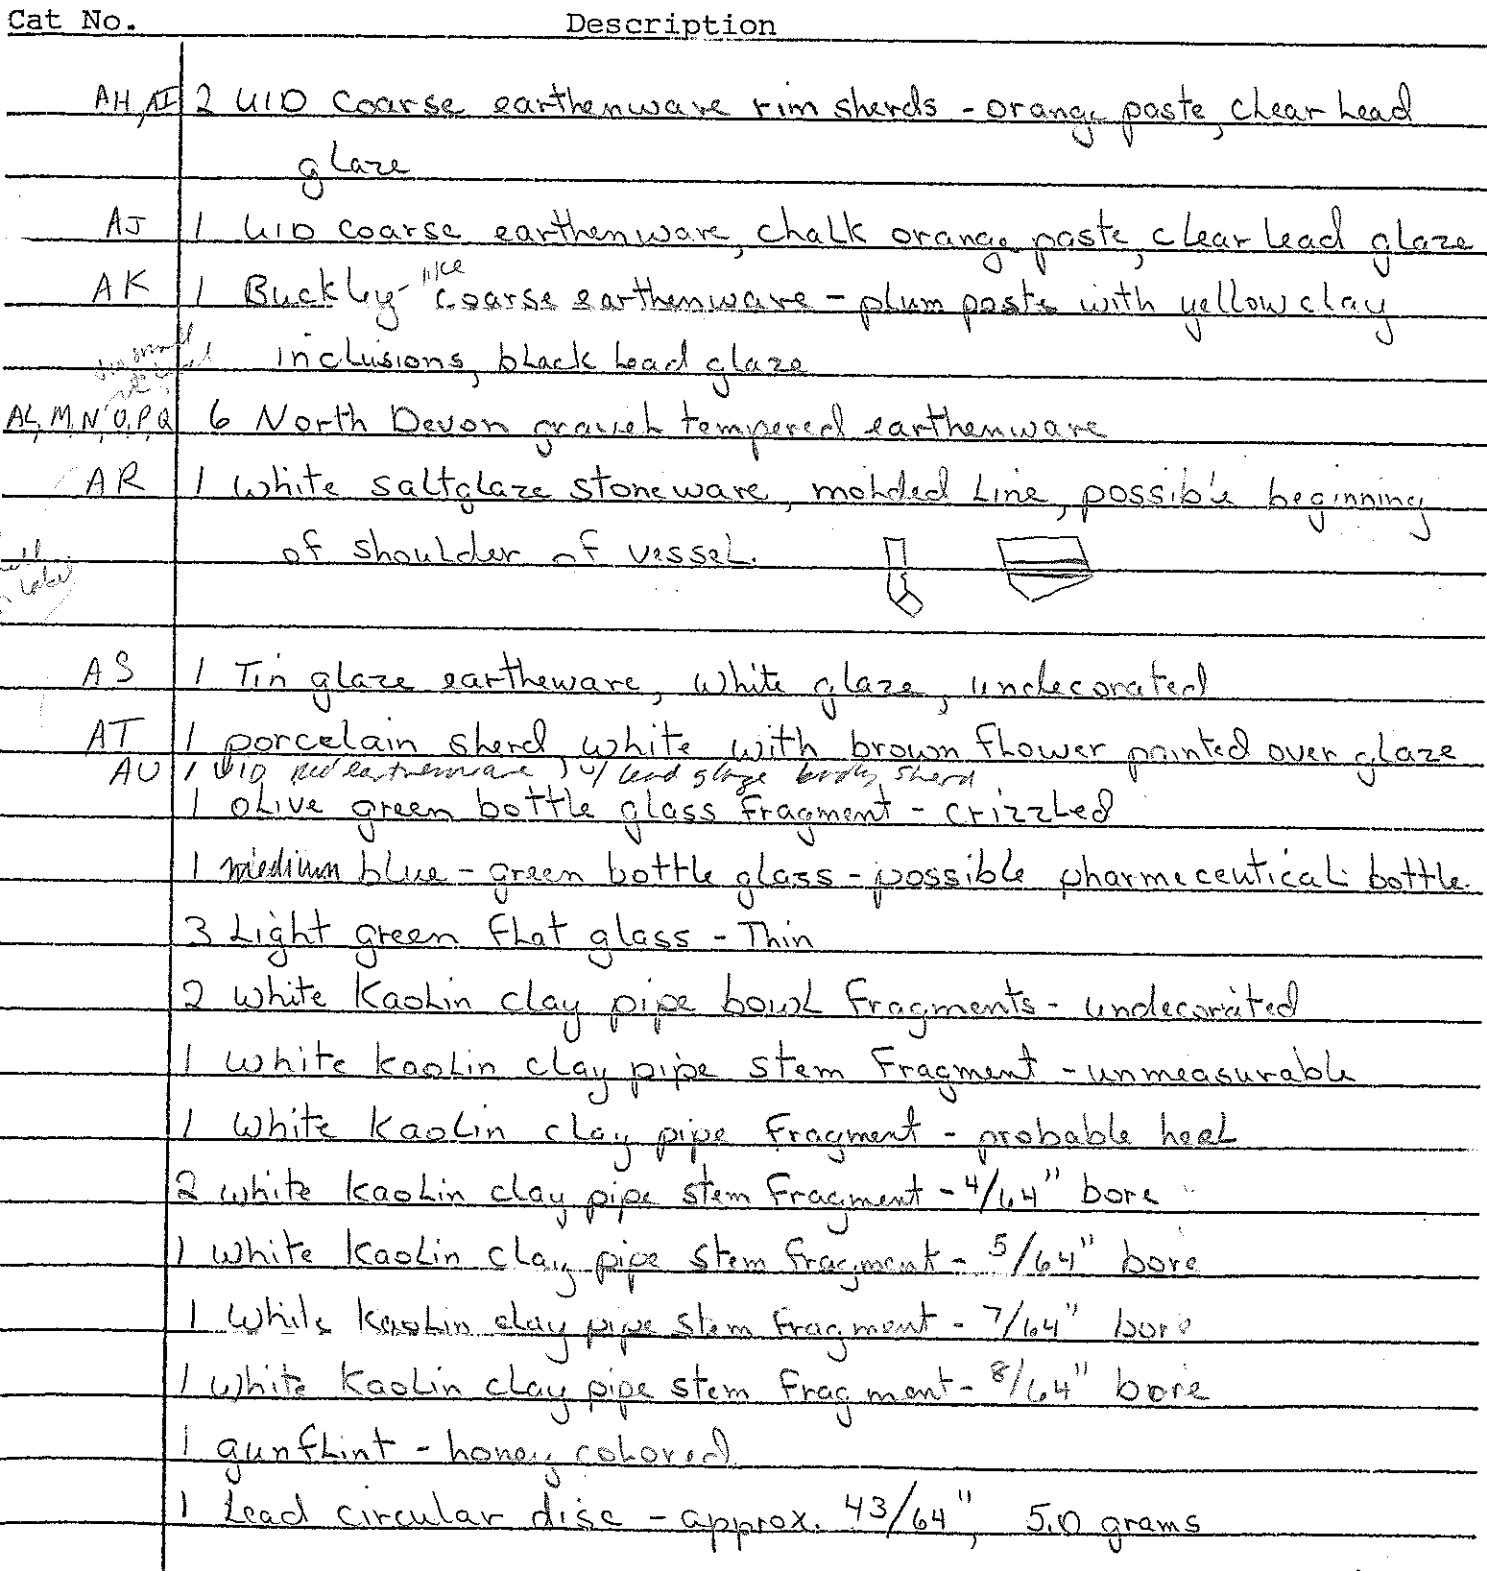 Cat No. Description
AH, AI 2 UID coarse earthenware rim sherds - orange paste, clear lead
glaze
AJ 1 UID coarse earthenware, chalk orange paste, clear lead glaze
AK 1 Buckley-"like coarse earthenware - plum paste with yellow clay
inclusions, black lead glaze
AL, M, N, O, P, Q 6 North Devon gravel tempered earthenware
AR 1 white saltglaze stoneware, molded line, possible beginning
of shoulder of vessel.
label
AS 1 Tin glaze eartheware, white glaze, undecorated
AT 1 porcelain sherd, white with brown flower painted over glaze
AU 1 UID red earthenware w/ lead glaze body sherd
1 olive green bottle glass fragment - crizzled
1 medium blue - green bottle glass - possible pharmeceutical bottle.
3 Light green flat glass - Thin
2 white Kaolin clay pipe bowl fragments - undecorated
1 white kaolin clay pipe stem fragment - unmeasurable
1 white Kaolin clay pipe fragment - probable heel
2 white kaolin clay pipe stem fragment - 4/64" bore
1 white kaolin clay pipe stem fragment - 5/64" bore
1 white kaolin clay pipe stem fragment - 7/64" bore
1 white Kaolin clay pipe stem fragment - 8/64" bore
1 gunflint - honey colored
1 Lead circular disc - approx. 43/64", 5.0 grams